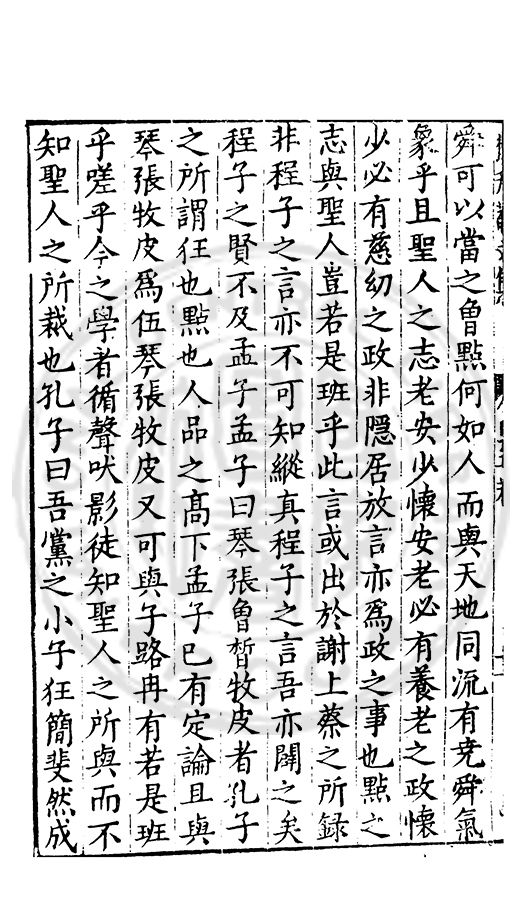 舜可以當之曾點何如人而與天地同流有尭舜氣
象乎且聖人之志老安少懷安老必有養老之政懷
少必有慈幼之政非隱居放言亦爲政之事也點之
志與聖人豈若是班乎此言或出於謝上蔡之所録
非程子之言亦不可知縱真程子之言吾亦闢之矣
程子之賢不及孟子孟子曰琴張曾皙牧皮者孔子
之所謂狂也點也人品之高下孟子已有定論且與
琴張牧皮爲伍琴張牧皮又可與子路冉有若是班
乎嗟乎今之學者循聲吠影徒知聖人之所與而不
知聖人之所裁也孔子曰吾黨之小子狂簡斐然成